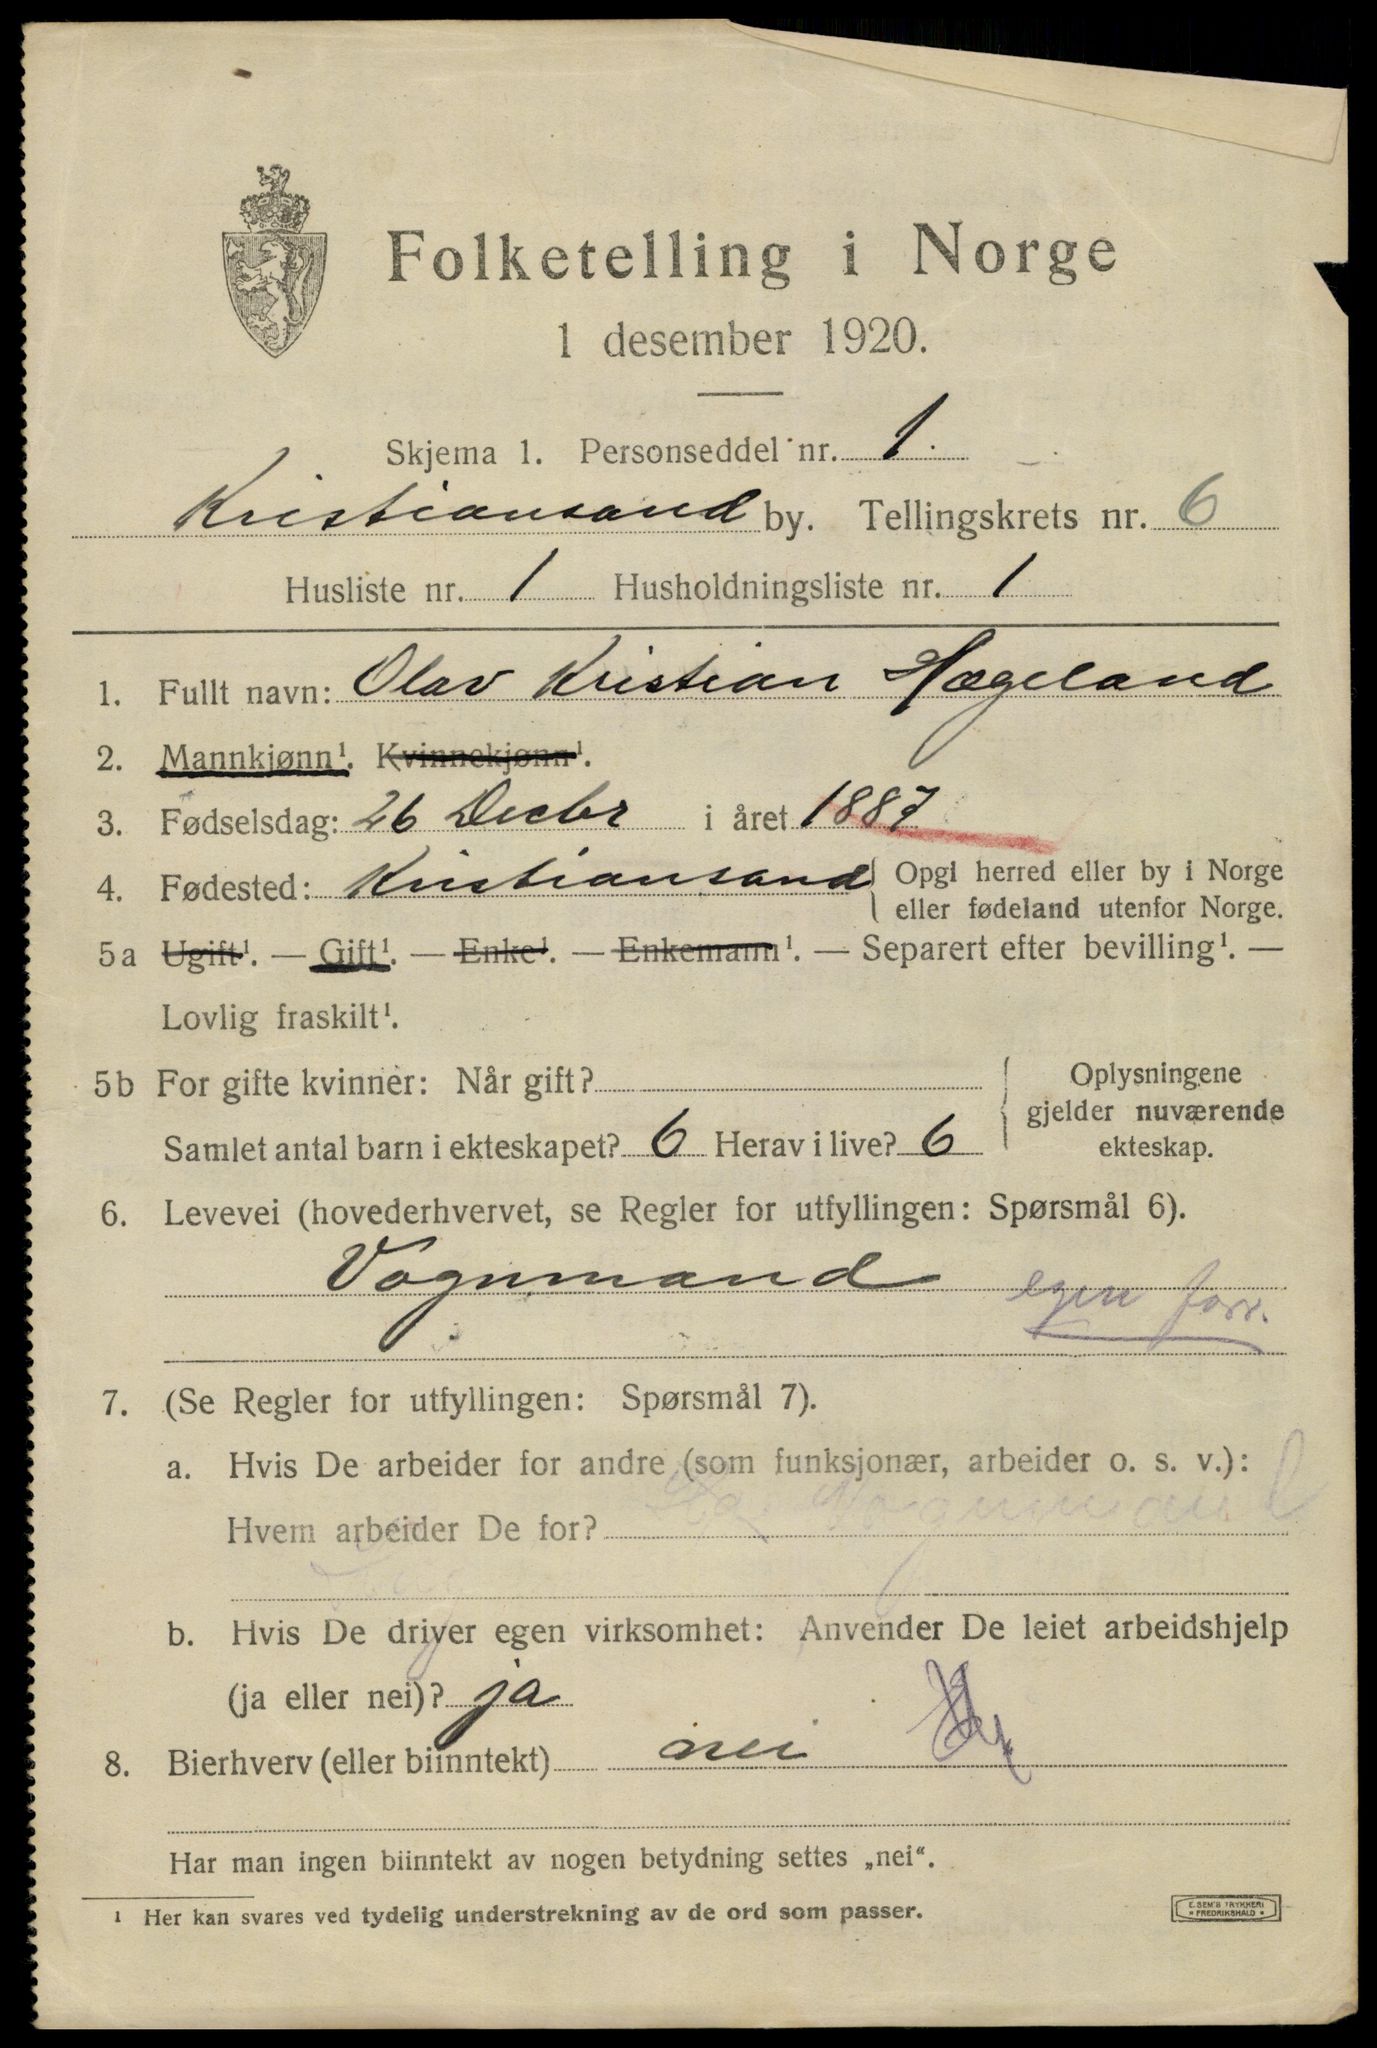 Folketelling i Norge
1 desember 1920.
Skjema 1. Personseddel nr. 1.
Kristiansand by. Tellingskrets nr. 6
Husliste nr. 1 Husholdningsliste nr. 1
1. Fullt navn: Olav Kristian Hægeland
2. Mannkjønn¹. Kvinnekjønn¹.
3. Fødselsdag: 26 Decbr i året 1887
4. Fødested: Kristiansand { Opgi herred eller by i Norge
eller fødeland utenfor Norge.
5a Ugift¹. — Gift¹. — Enke¹. — Enkemann¹. — Separert efter bevilling¹. —
Lovlig fraskilt¹.
5b For gifte kvinner: Når gift?
Samlet antal barn i ekteskapet? 6 Herav i live? 6
Oplysningene
gjelder nuværende
ekteskap.
6. Levevei (hovederhvervet, se Regler for utfyllingen: Spørsmål 6).
Vognmand egen forr.
7. (Se Regler for utfyllingen: Spørsmål 7).
a. Hvis De arbeider for andre (som funksjonær, arbeider o. s. v.):
Hvem arbeider De for? Vognmand
b. Hvis De driver egen virksomhet: Anvender De leiet arbeidshjelp
(ja eller nei)? ja
8. Bierhverv (eller biinntekt) nei
Har man ingen biinntekt av nogen betydning settes „nei“.
¹ Her kan svares ved tydelig understrekning av de ord som passer.
E. SEM'S TRYKKERI
* FREDRIKSHALD *